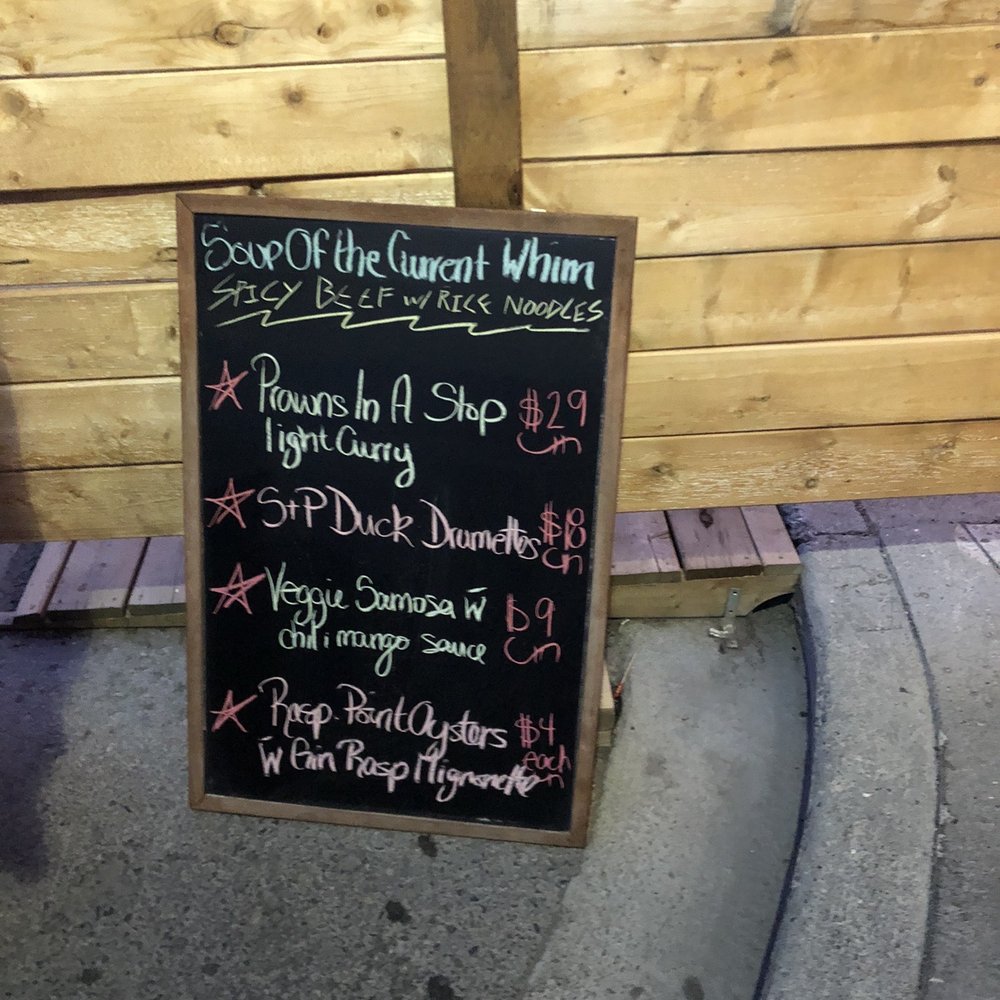 Soup Of the Current Whim
SPICY BEEF w/ RICE NOODLES
Prawns In A Stop $29
light Curry
S+P Duck Drumettes $18
Veggie Samosa w 9
chili mango sauce
Rasp. Point Oysters $4
w Gin Rasp Mignonette each